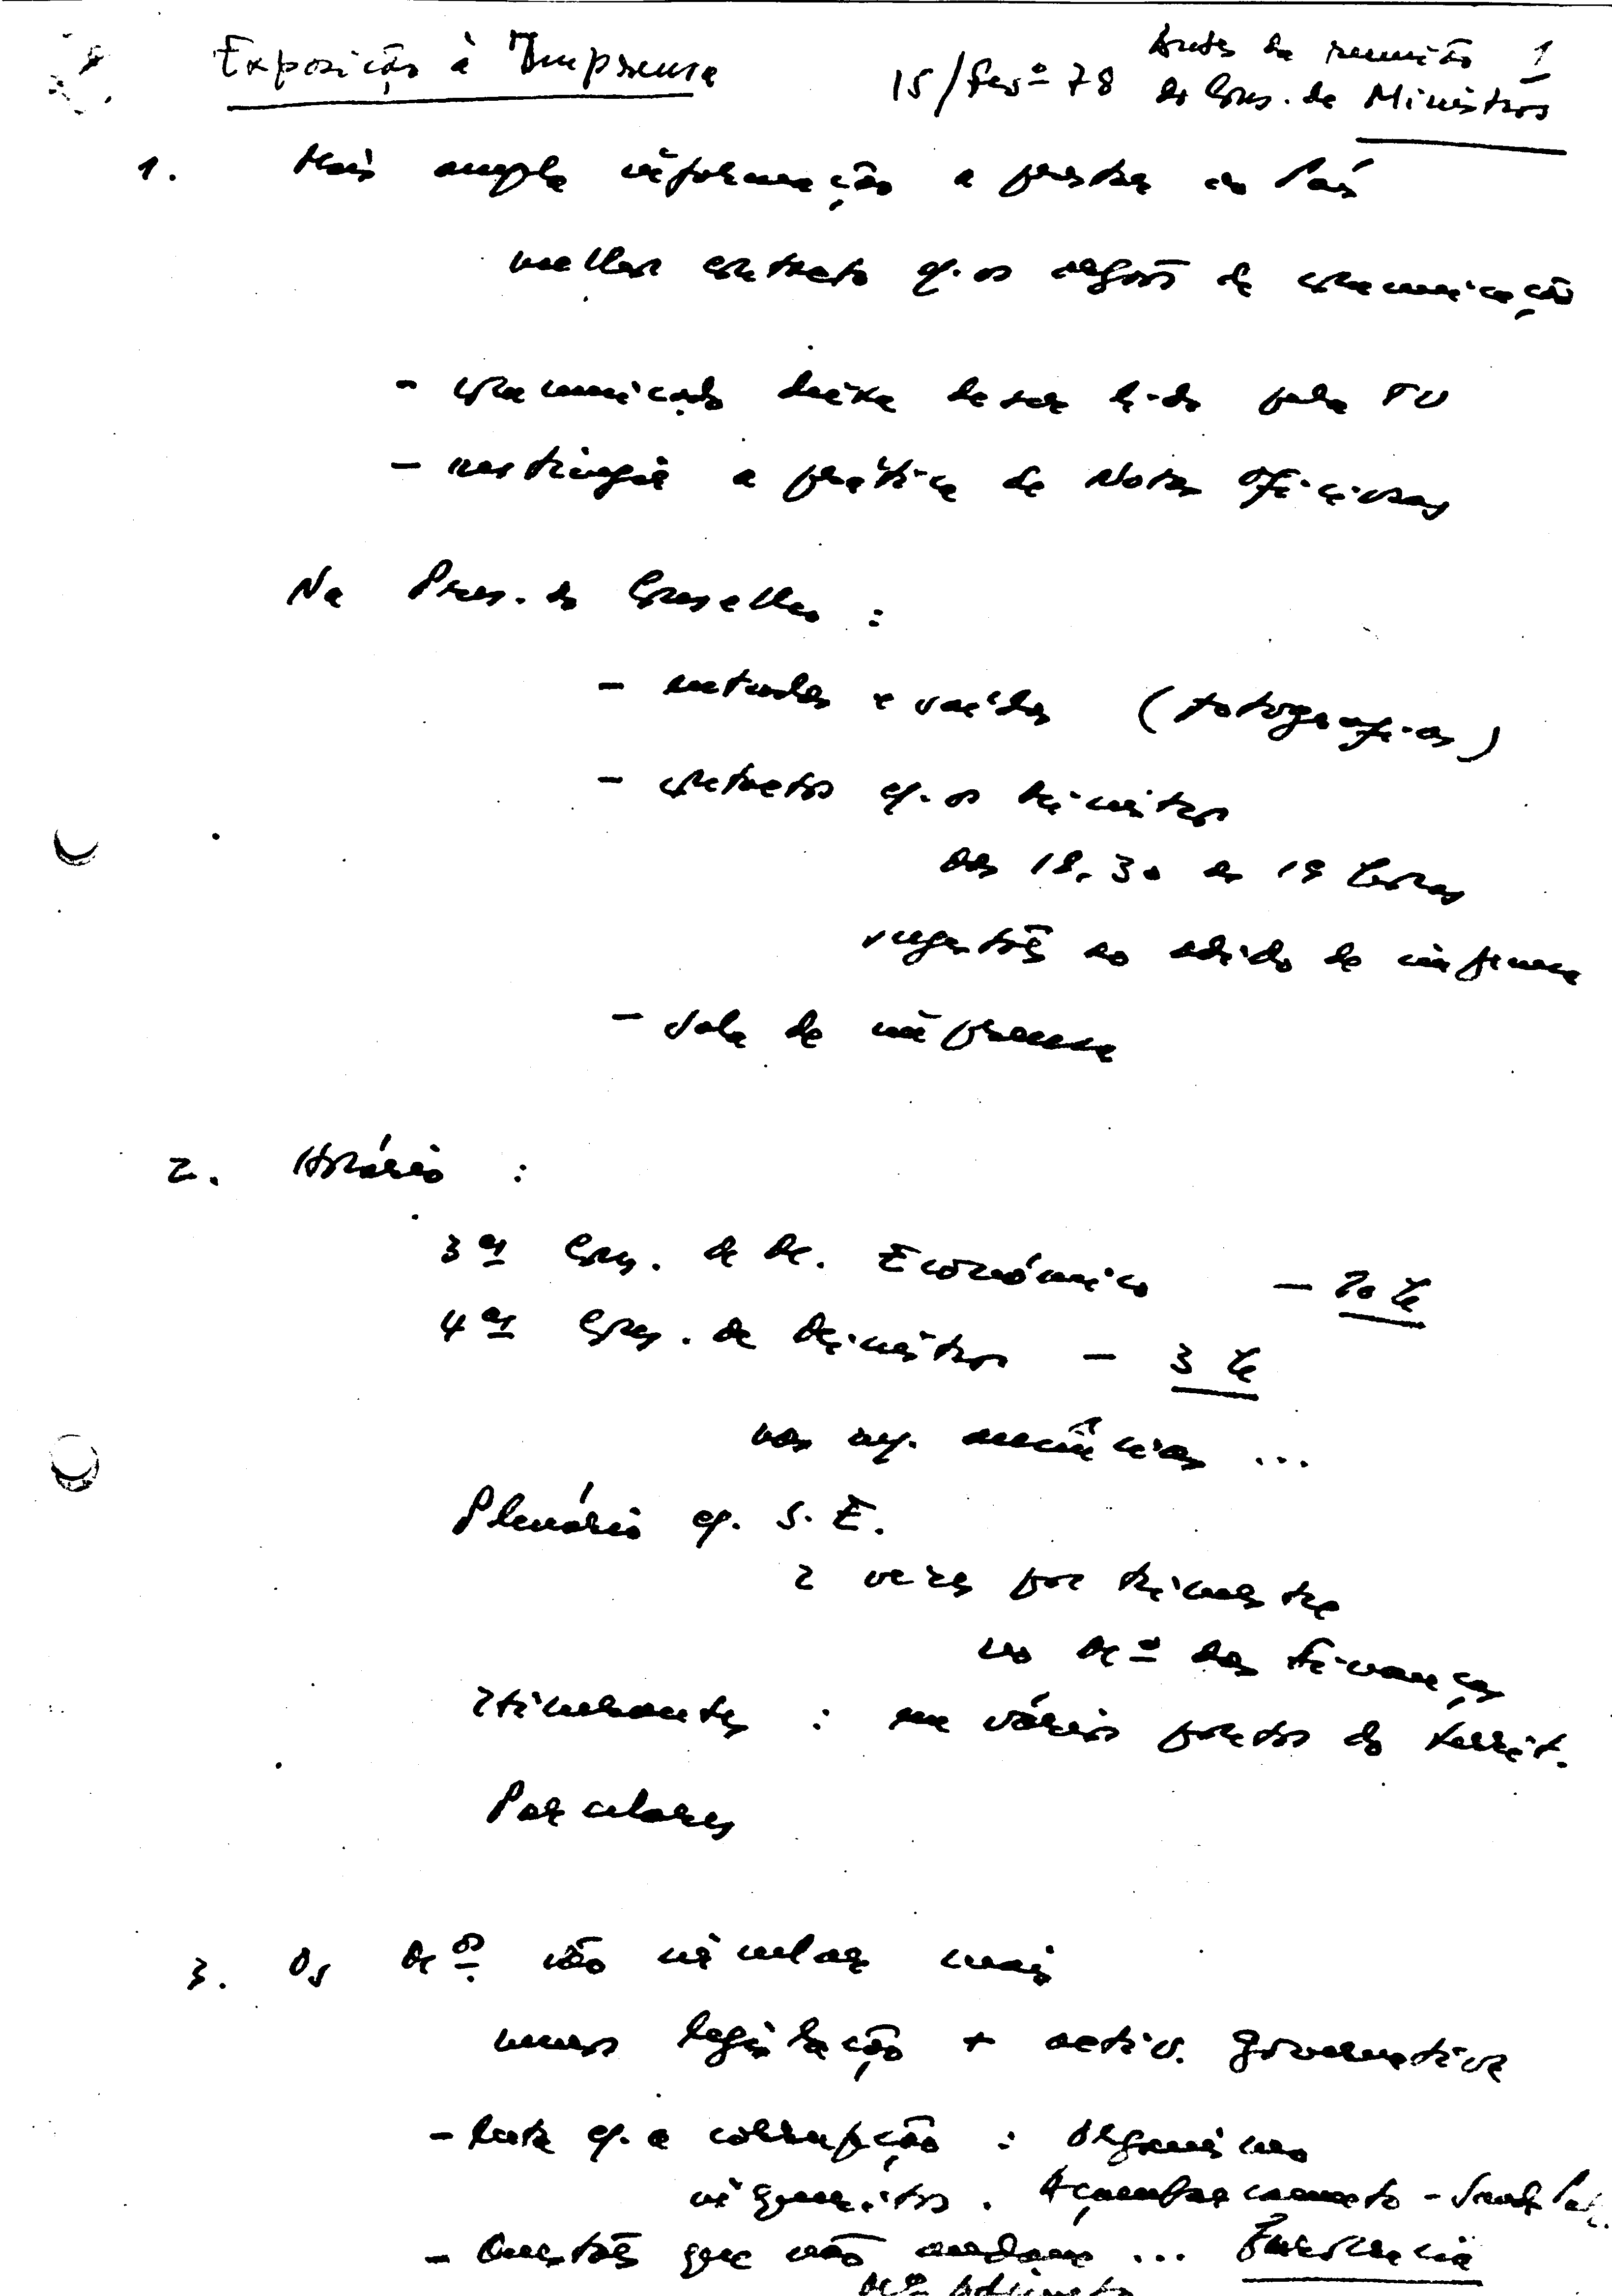 Exposição à Imprensa
15/Fevº 78
Antes da reunião 1
do Cons. de Ministros
1. Mais ampla informação a prestar ao País
melhor contacto c/. os orgãos de comunicação
- comunicado deixa de ser lido pela TV
- restringir a prática de Notas Oficiosas
Na Pres. do Conselho :
- entradas e saídas (fotografias)
- contactos c/. os Ministros
das 18.30 às 19 horas
sugestões ao adido de imprensa
- sala de imprensa
2. Horário :
3as Cons. de M. Económico - 10 h
4as Cons. de Ministros - 3 h
nas audiências ...
Plenário c/. S. E.
2 vezes por trimestre
no Mº das Finanças
Itinerantes : em vários pontos do territ.
Parcelares
3. Os Mos vão circular mais
menos legislação + activ. governativa
- luta c/. a corrupção : organismo
inquéritos. Açambarcamento -
- Questões que não andam ...